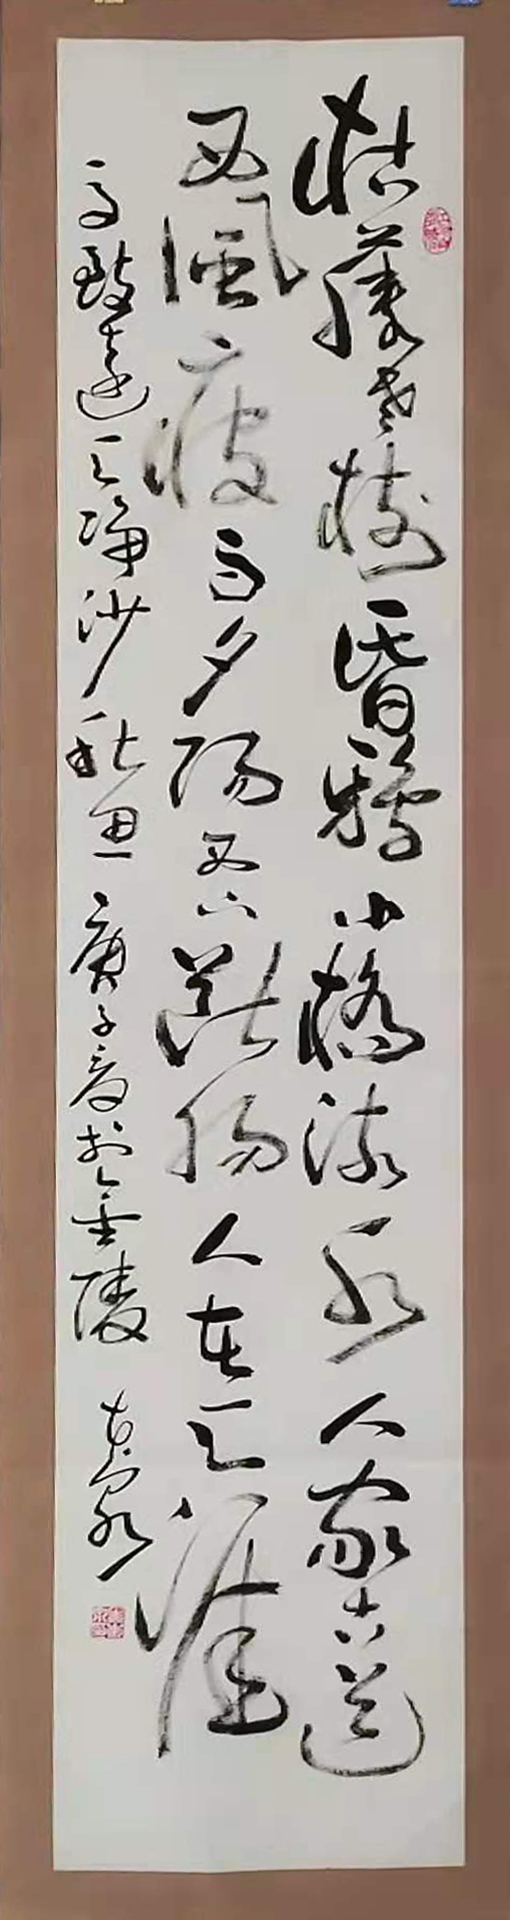 枯藤老樹昏鴉小橋流水人家古道
西風瘦馬夕陽西下斷腸人在天涯
馬致遠天淨沙秋思 庚子夏於金陵